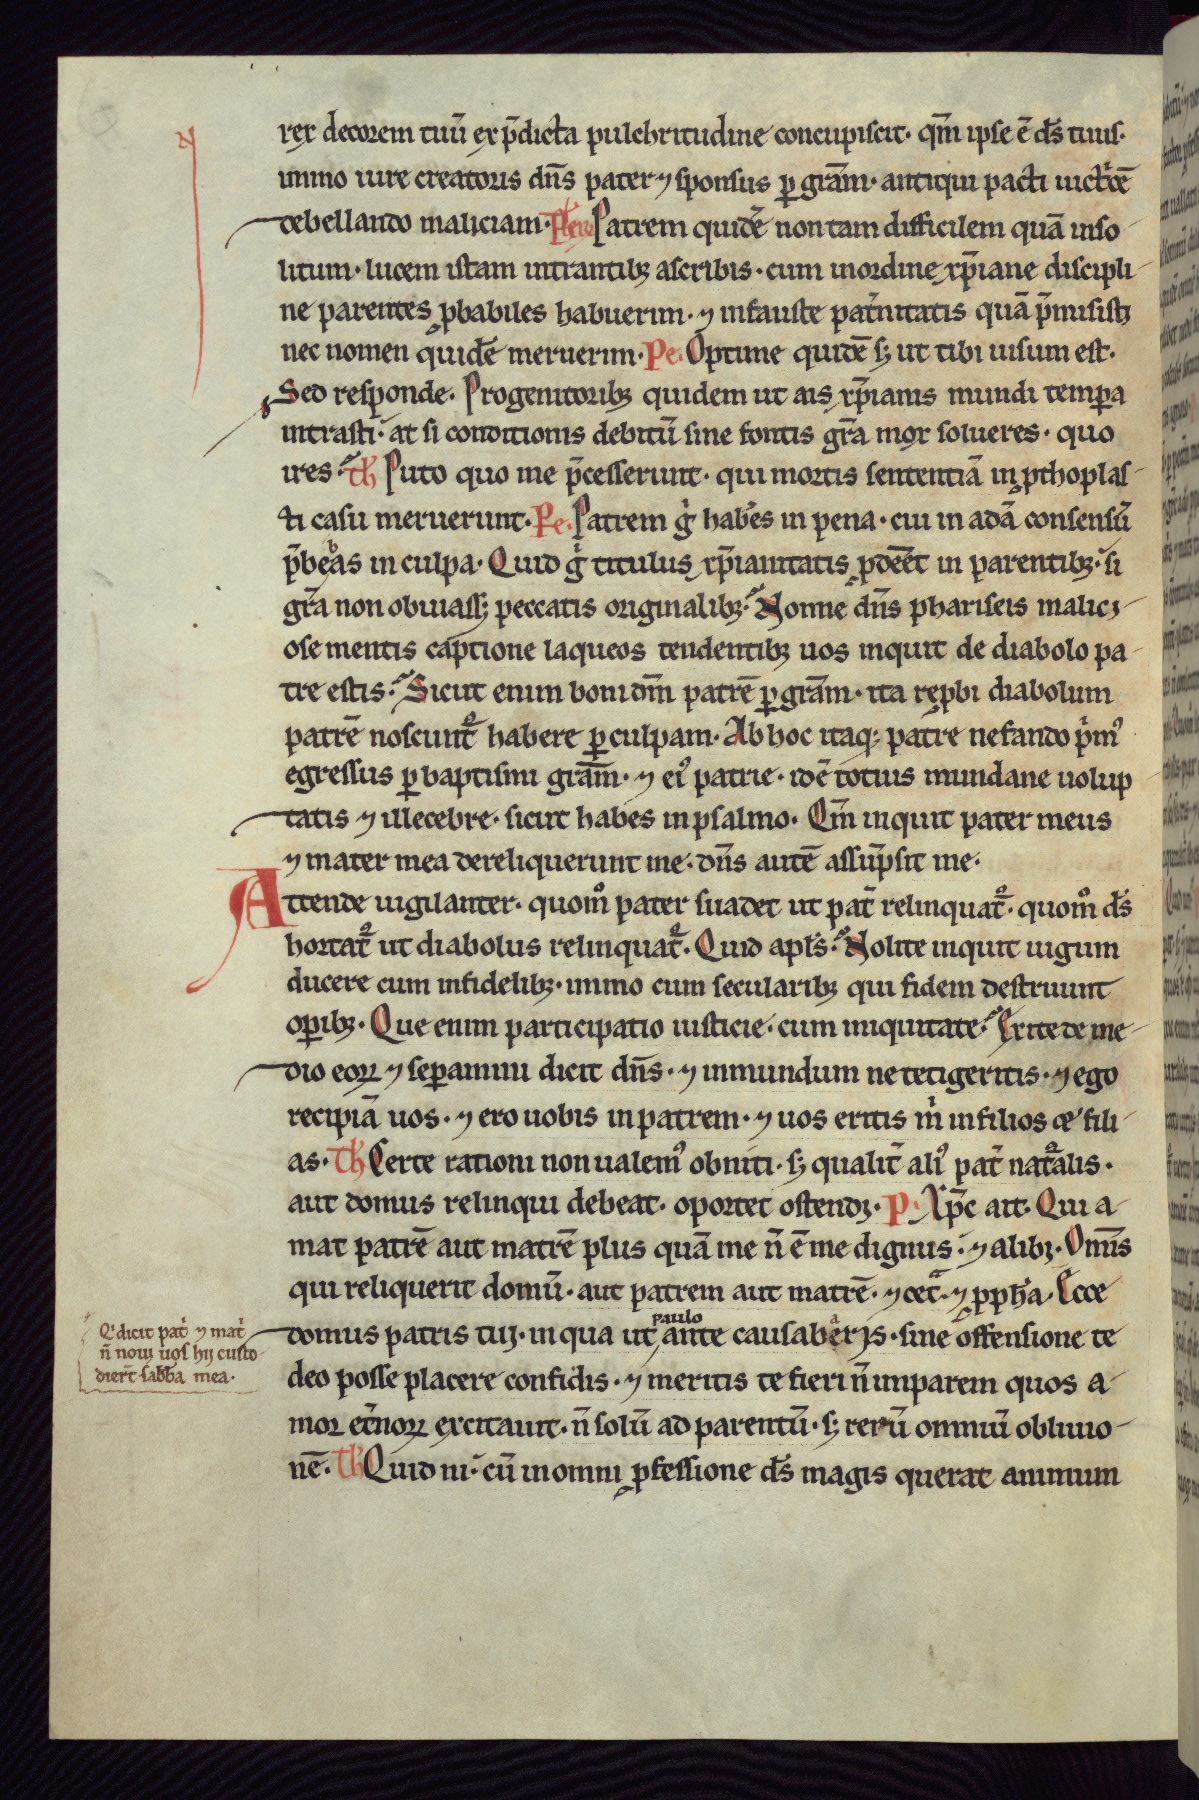 rex decorem tuū ex p̄dicta pulchritudine concupiscit· qm̄ ipse ē ds̄ tuus·
immo iure creatoris dn̄s pater ⁊ sponsus ꝑ grām· antiqui pacti
debellando maliciam· Patrem quidē non tam difficilem quā inso-
litum· lucem istam intrantibꝫ ascribis· cum in ordine xp̄iane discipli-
ne parentes ꝓbabiles habuerim· ⁊ infauste pat̄nitatis quā p̄misistꝫ
nec nomen quidē meruerim· Pe· Optime quidē sꝫ ut tibi uisum est·
Sed responde· Progenitoribꝫ quidem ut ais xp̄ianis mundi tempa
intrasti· at si conditionis debitū sine fontis gr̄a mox solueres· quo
ires· Th̄ Puto quo me p̄cesserunt· qui mortis sententiā in ꝓthoplas-
ti casu meruerunt· Pe· Patrem gͥ habes in pena· cui in adā consensū
p̄bebas in culpa· Quid gͥ titulus xp̄ianitatis ꝓdeēt in parentibꝫ· si
gr̄a non obuiassꝫ peccatis originalibꝫ· Nonne dn̄s phariseis malici-
ose mentis captione laqueos tendentibꝫ uos inquit de diabolo pa-
tre estis· Sicut enim boni dm̄ patrē ꝑ grām· ita reꝓbi diabolum
patrē noscunt᷑ habere ꝑ culpam· Ab hoc itaqꝫ patre nefando p̄mꝰ
egressus ꝑ baptismi grām· ⁊ eiꝰ patrie· idē totius mundane uolup
tatis ⁊ illecebre· sicut habes in psalmo· Qm̄ inquit pater meus
⁊ mater mea dereliquerunt me· dn̄s autē assūpsit me·
Attende uigilanter· quomͦ pater suadet ut pat̄ relinquat᷑· quomͦ ds̄
hortat᷑ ut diabolus relinquat᷑· Quid apl̄s· Nolite inquit iugum
ducere cum infidelibꝫ· immo cum secularibꝫ qui fidem destruunt
opibꝫ· Que enim participatio iusticie· cum iniquitate· Exite de me-
dio eoꝝ ⁊ sepamini dicit dn̄s· ⁊ inmundum ne tetigeritis· ⁊ ego
recipiā uos· ⁊ ero uobis in patrem· ⁊ uos eritis mͥ in filios ⁊ fili-
as· Th̄ Certe rationi non ualemꝰ obniti· sꝫ qualit̄ aliꝰ pat̄ nat̄alis·
aut domus relinqui debeat· oportet ostendꝫ· P· Xp̄c ait· Qui a-
mat patrē aut matrē plus quā me n̄ ē me dignus· ⁊ alibꝫ· Omīs
qui reliquerit domū· aut patrem aut matrē· ⁊ cet̄· ⁊ ꝓph̄a· Ecce
domus patris tui· in qua ut paulo ante causaberis· sine offensione te
deo posse placere confidis· ⁊ meritis te fieri n̄ imparem quos a-
mor et̄noꝝ excitauit· n̄ solū ad parentū· sꝫ rerū omniū obliuio-
nē· Th̄ Quid ni· cū in omni ꝓfessione ds̄ magis querat animum
Qͥ dicit pat̄ ⁊ mat̄
n̄ noui uos hii custo
dier̄t sabb̄a mea·